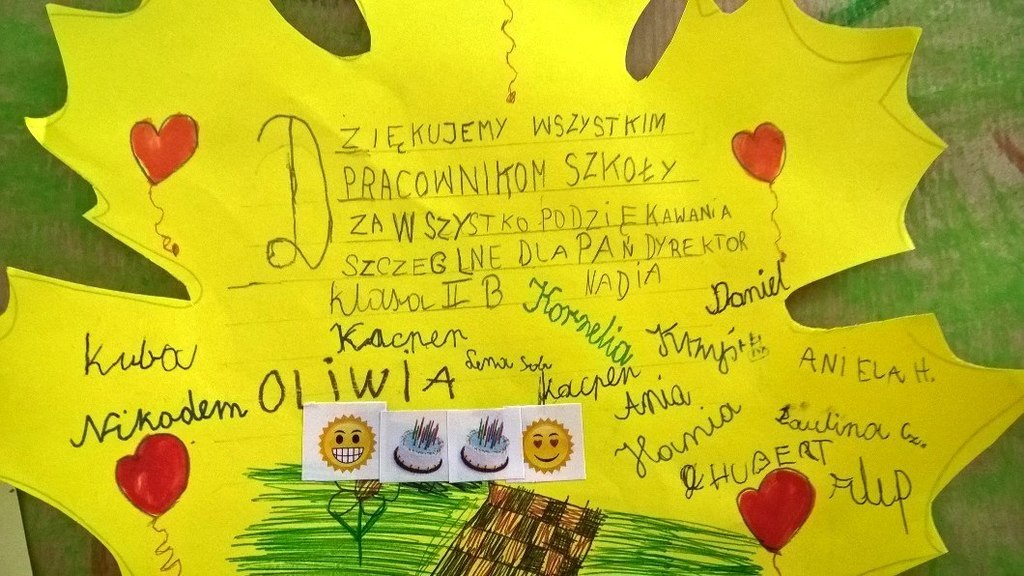 DZIĘKUJEMY WSZYSTKIM
PRACOWNIKOM SZKOŁY
ZA WSZYSTKO PODZIĘKAWANIA
SZCZEGLNE DLA PAŃ DYREKTOR
klasa II B
NADIA
Daniel
Kornelia
Kuba
Kacper
Krzyś
ANIELA H.
OLIWIA
Lena
Kacper
Ania
Nikodem
Hania
Paulina
HUBERT